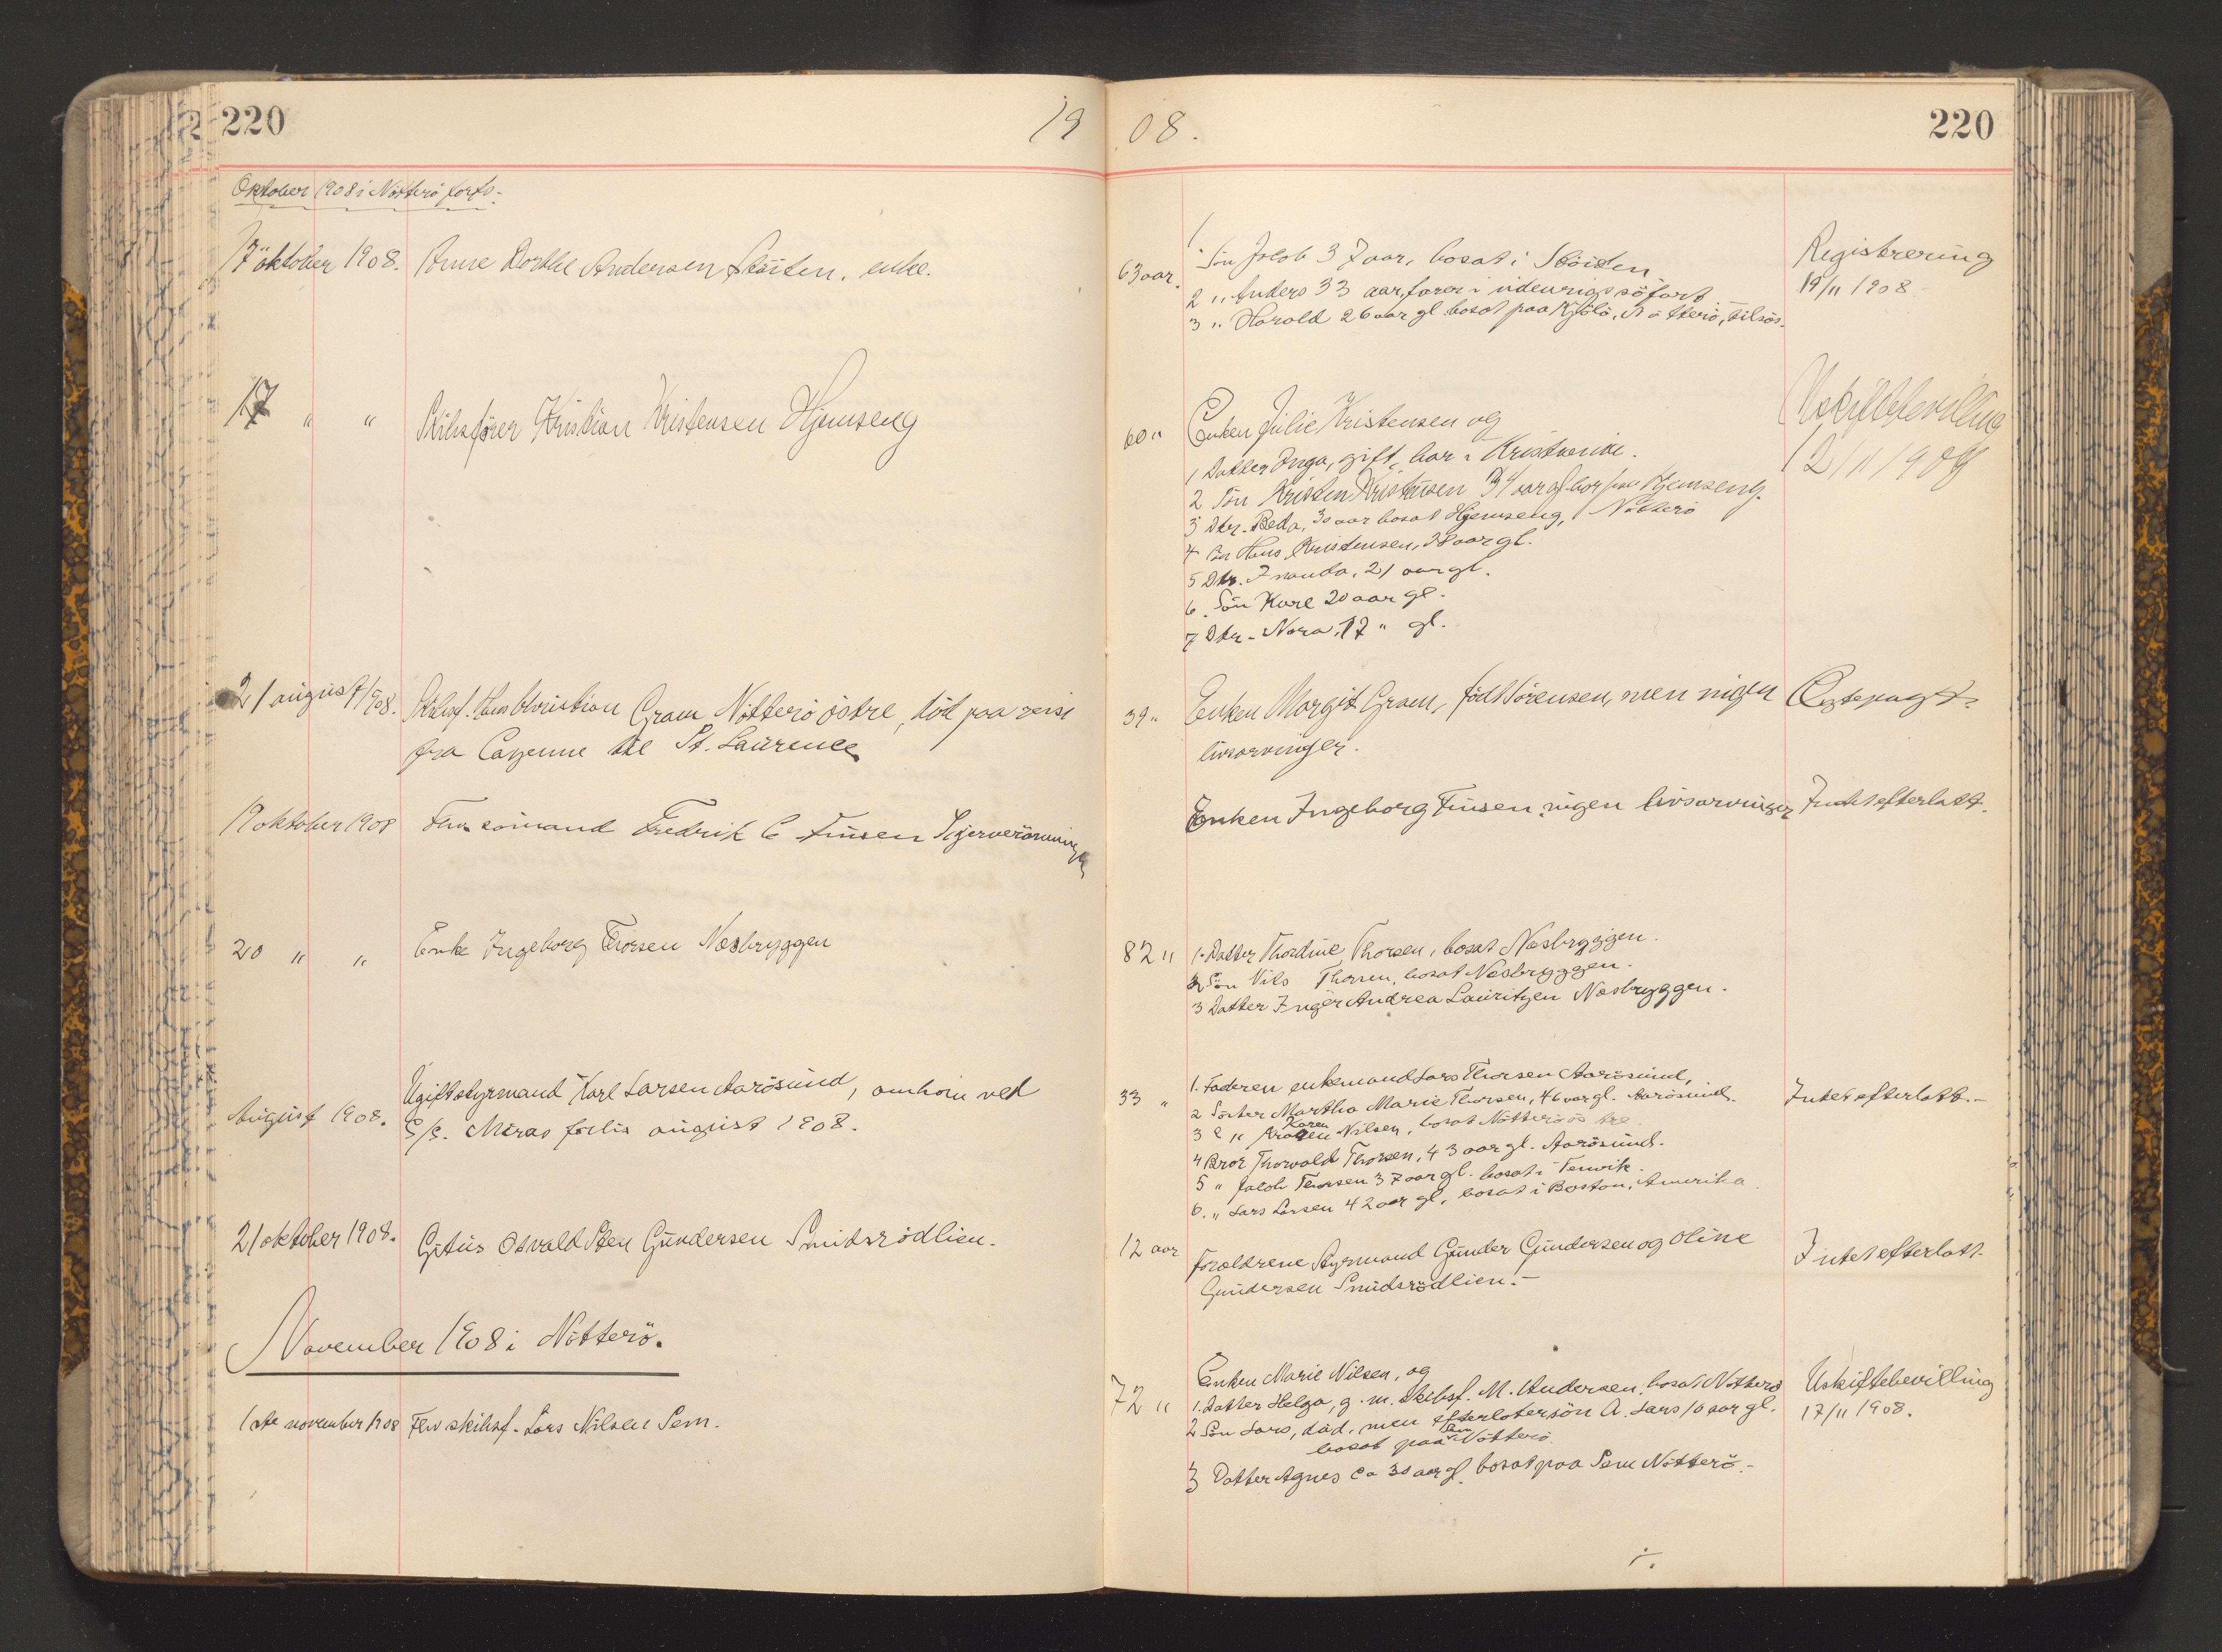 220
1908.
220
Oktober 1908 i Nötterö forts.
17 oktober 1908. Anne Dorthe Andersen Stöiten, enke.
63 aar.
1. Sön Jacob 37 aar, bosat i Stöiten
2 " Anders 33 aar, farer i udenrigs söfart
3 " Harold 26 aar gl. bosat paa Kjölö, Nötterö, tilsös.
Registrering
19/11 1908.
17 " " Skibsförer Kristian Kristensen Hjemseng
60 "
Enken Julie Kristensen og
1 Datter Inga, gift, bor i Kristiania.
2 Sön Kristen Kristensen 34 aar gl. bor paa Hjemseng.
3 Dtr. Beda, 30 aar bosat Hjemseng, Nötterö
4 Sön Hans Kristensen, 28 aar gl.
5 Dtr. Franda, 21 aar gl.
6. Sön Karl 20 aar gl.
7 Dtr. Nora, 17 " gl.
Uskiftebevilling
12/11 1908
21 august 1908. Skibsf. Hans Christian Gram Nötterö östre, död paa reise
fra Cayenne til St. Laurence
39 "
Enken Margit Gram, född Sörensen, men ingen
livsarvinger.
Egtepagt.
19 oktober 1908 Fhv. sömand Fredrik C Fuusen Skjerverönningen
Enken Ingeborg Fuusen, ingen livsarvinger
Intet efterlatt.
20 " " Enke Ingeborg Thorsen Nesbryggen
82 "
1. Datter Thordine Thorsen, bosat Nesbryggen.
2 Sön Nils Thorsen, bosat Nesbryggen.
3 Datter Inger Andrea Lauritzen Nesbryggen.
August 1908.
Ugift styrmand Karl Larsen Aarösund, omkom ved
S/S. Meras forlis august 1908.
33 "
1. Faderen enkemand Lars Thorsen Aarösund,
2 Söster Martha Marie Thorsen, 46 aar gl. Aarösund.
3 " Karen Nilsen, bosat Nötterö östre.
4 Bror Thorvald Thorsen, 43 aar gl. Aarösund.
5 " Jakob Thorsen 37 aar gl. bosat i Tenvik.
6. " Lars Larsen 42 aar gl. bosat i Boston, Amerika.
Intet efterlatt.-
21 oktober 1908. Gitus Osvald Sten Gundersen Smidsrödlien.
12 aar
Foreldrene Styrmand Gunder Gundersen og Oline
Gundersen Smidsrödlien.-
Intet efterlatt
November 1908 i Nötterö.
1ste november 1908 Fhv skibsf. Lars Nilsen Sem.
72 "
Enken Marie Nilsen, og
1. Datter Helga, g. m. skibsf. M. Andersen, bosat Nötterö
2 Sön Lars, död, men efterlater sön A. Lars 10 aar gl.
bosat paa Sem Nötterö.
3 Datter Agnes ca 30 aar gl. bosat paa Sem Nötterö.-
Uskiftebevilling
17/11 1908.
./.